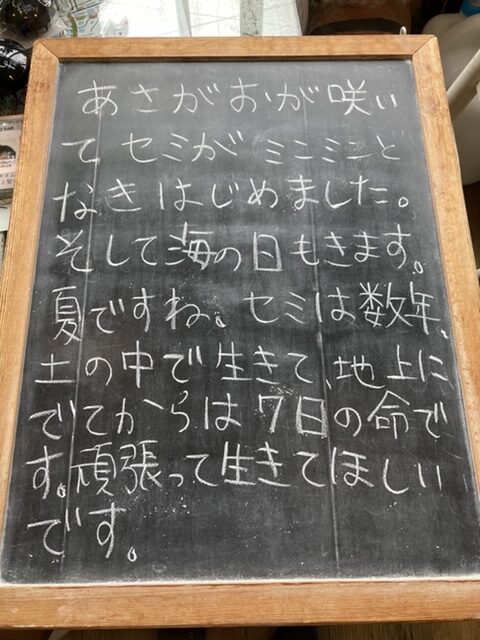 あさがおが咲い
て セミが ミンミンと
なきはじめました。
そして海の日もきます。
夏ですね。セミは数年、
土の中で生きて、地上に
でてからは7日の命で
す。頑張って生きてほしい
です。